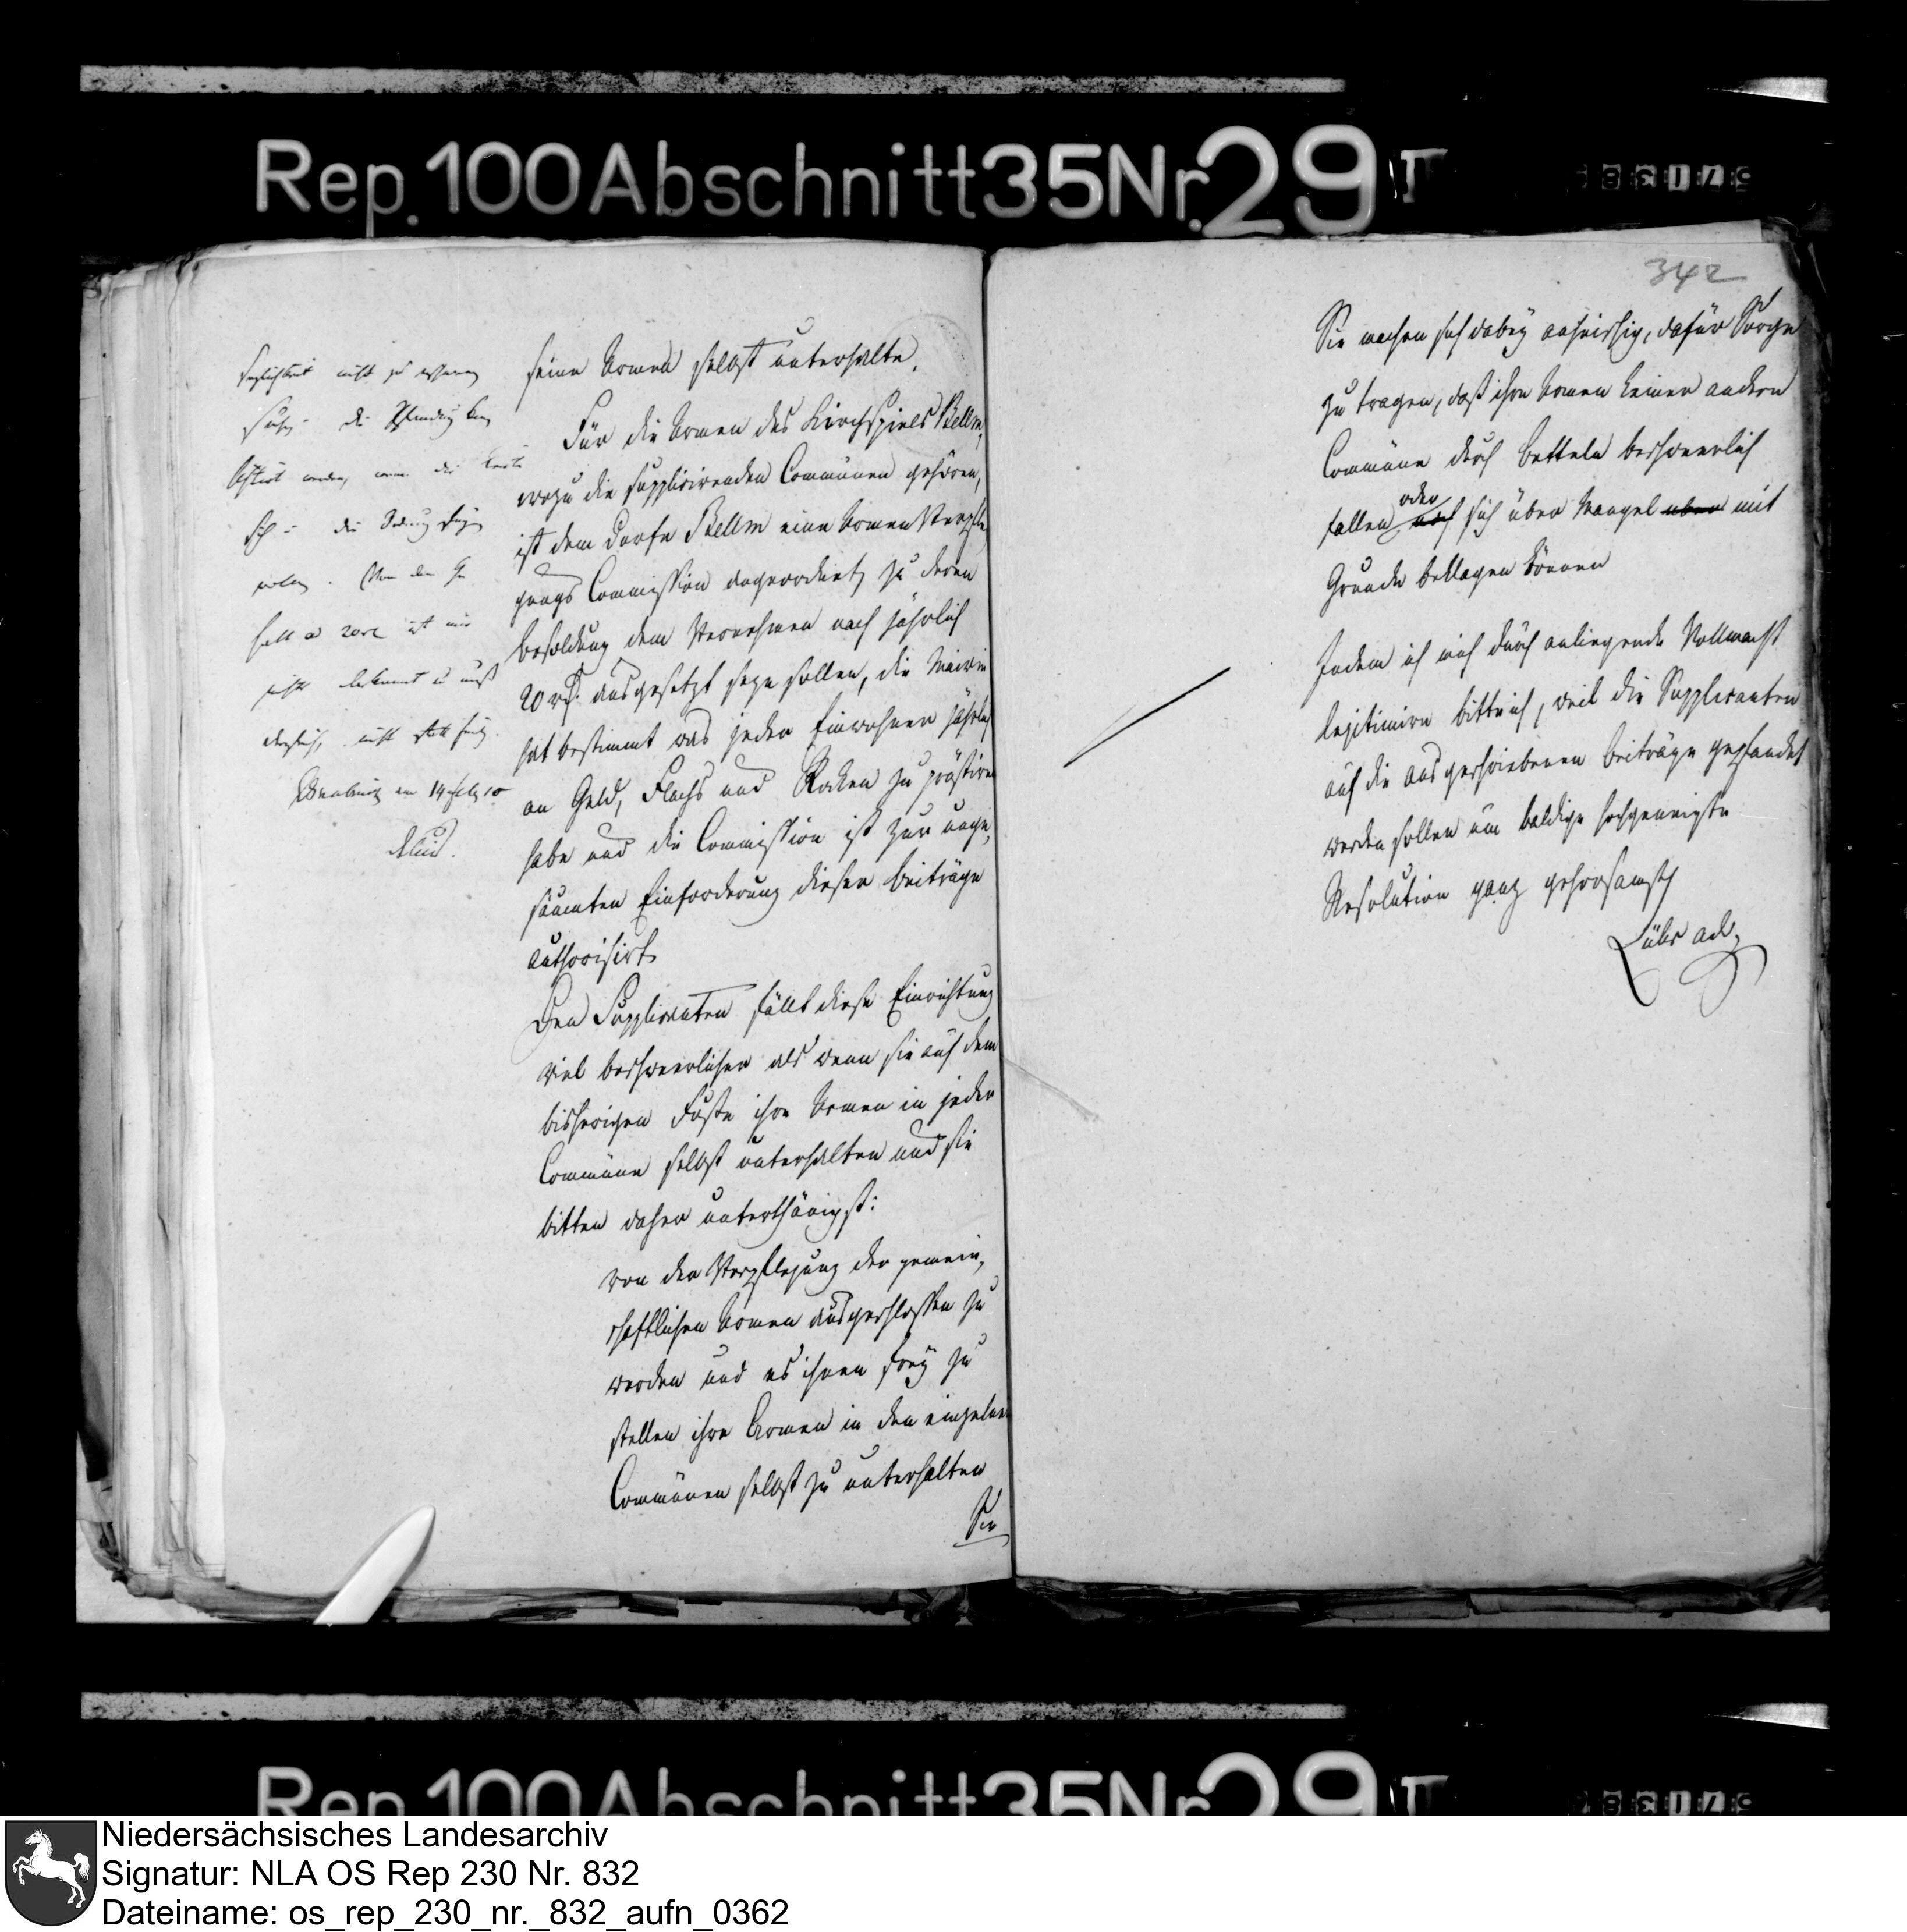 Rep. 100 Abschnitt 35 Nr. 29 I
342
seine Armen selbst unterhalte.
Für die Armen des Kirchspiels Bellm,
wozu die supplicirenden Communen gehören,
ist dem Dorfe Bellm eine Armen Verpfle,
gungs Commission angeordnet, zu deren
Besoldung dem Vernehmen nach jährlich
20 rth. ausgesetzt seyn sollen, die Mairie
hat bestimmt was jeder Einwohner jährlich
an Geld, Flachs und Rocken zu prästiren
habe und die Commission ist zur unge,
säumten Einforderung dieser Beiträge
authorisirt.
Den Supplicanten fällt diese Einrichtung
viel beschwerlicher als wenn sie auf dem
bisherigen Fuße ihre Armen in jeder
Commüne selbst unterhalten und sie
bitten daher unterthänigst:
von der Verpflegung der gemein,
schaftlichen Armen ausgeschlossen zu
werden und es ihnen frey zu
stellen ihre Armen in den einzelnen
Commünen selbst zu unterhalten
Sie
nicht
die
werden, wenn die
die
Von dem
ist mir
nicht bekannt u muß
nicht statt
Osnabrück den 14
Sie machen sich dabey anheischig, dafür Sorge
zu tragen, daß ihre Armen keiner andern
Commüne durch Betteln beschwerlich
oder
fallen noch sich über Mangel aber mit
Grunde beklagen können
Indem ich mich durch anliegende Vollmacht
legitimire bitte ich, weil die Supplicanten
auf die ausgeschriebenen Beiträge gepfandet
werden sollen um baldige hochgeneigte
Resolution ganz gehorsamst
adv.
Rep. 100 Abschnitt 35 Nr. 29 I
Niedersächsisches Landesarchiv
Signatur: NLA OS Rep 230 Nr. 832
Dateiname: os_rep_230_nr._832_aufn_0362